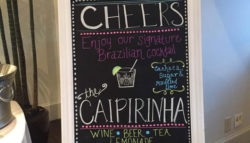 CHEERS
Enjoy our signature
Brazilian cocktail
Cachaca
Sugar &
muddled
lime
the
CAIPIRINHA
WINE • BEER • TEA
LEMONADE